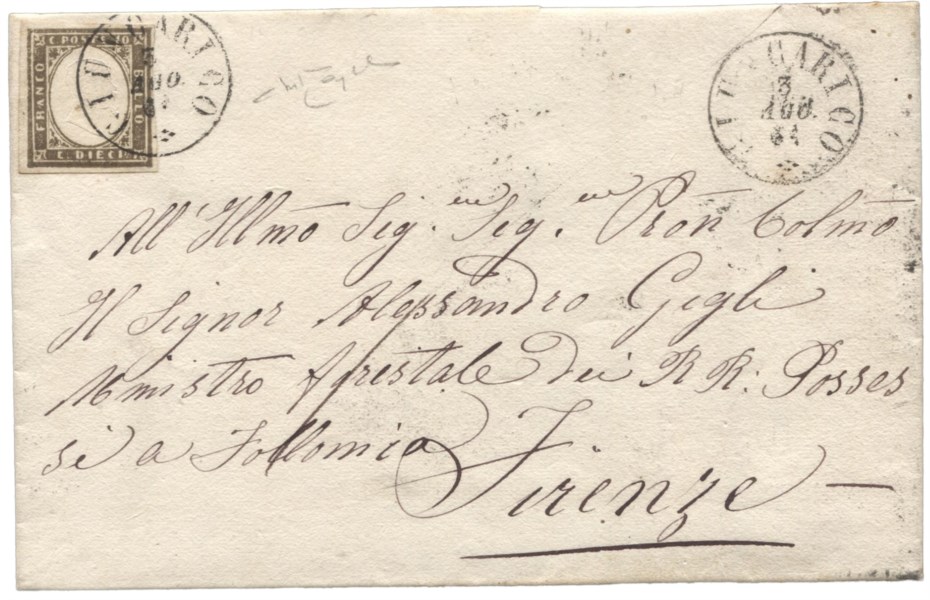 C. POSTE 20
FRANCO
BOLLO
C. DIECI
3
AGO.
61
GARIGO
3
AGO.
61
All' Illmo Sig.re Sig.re Pron Colmo
Il Signor Alessandro Gegli
Ministro Forestale dei R R: Posses
si a Follonica
Firenze —